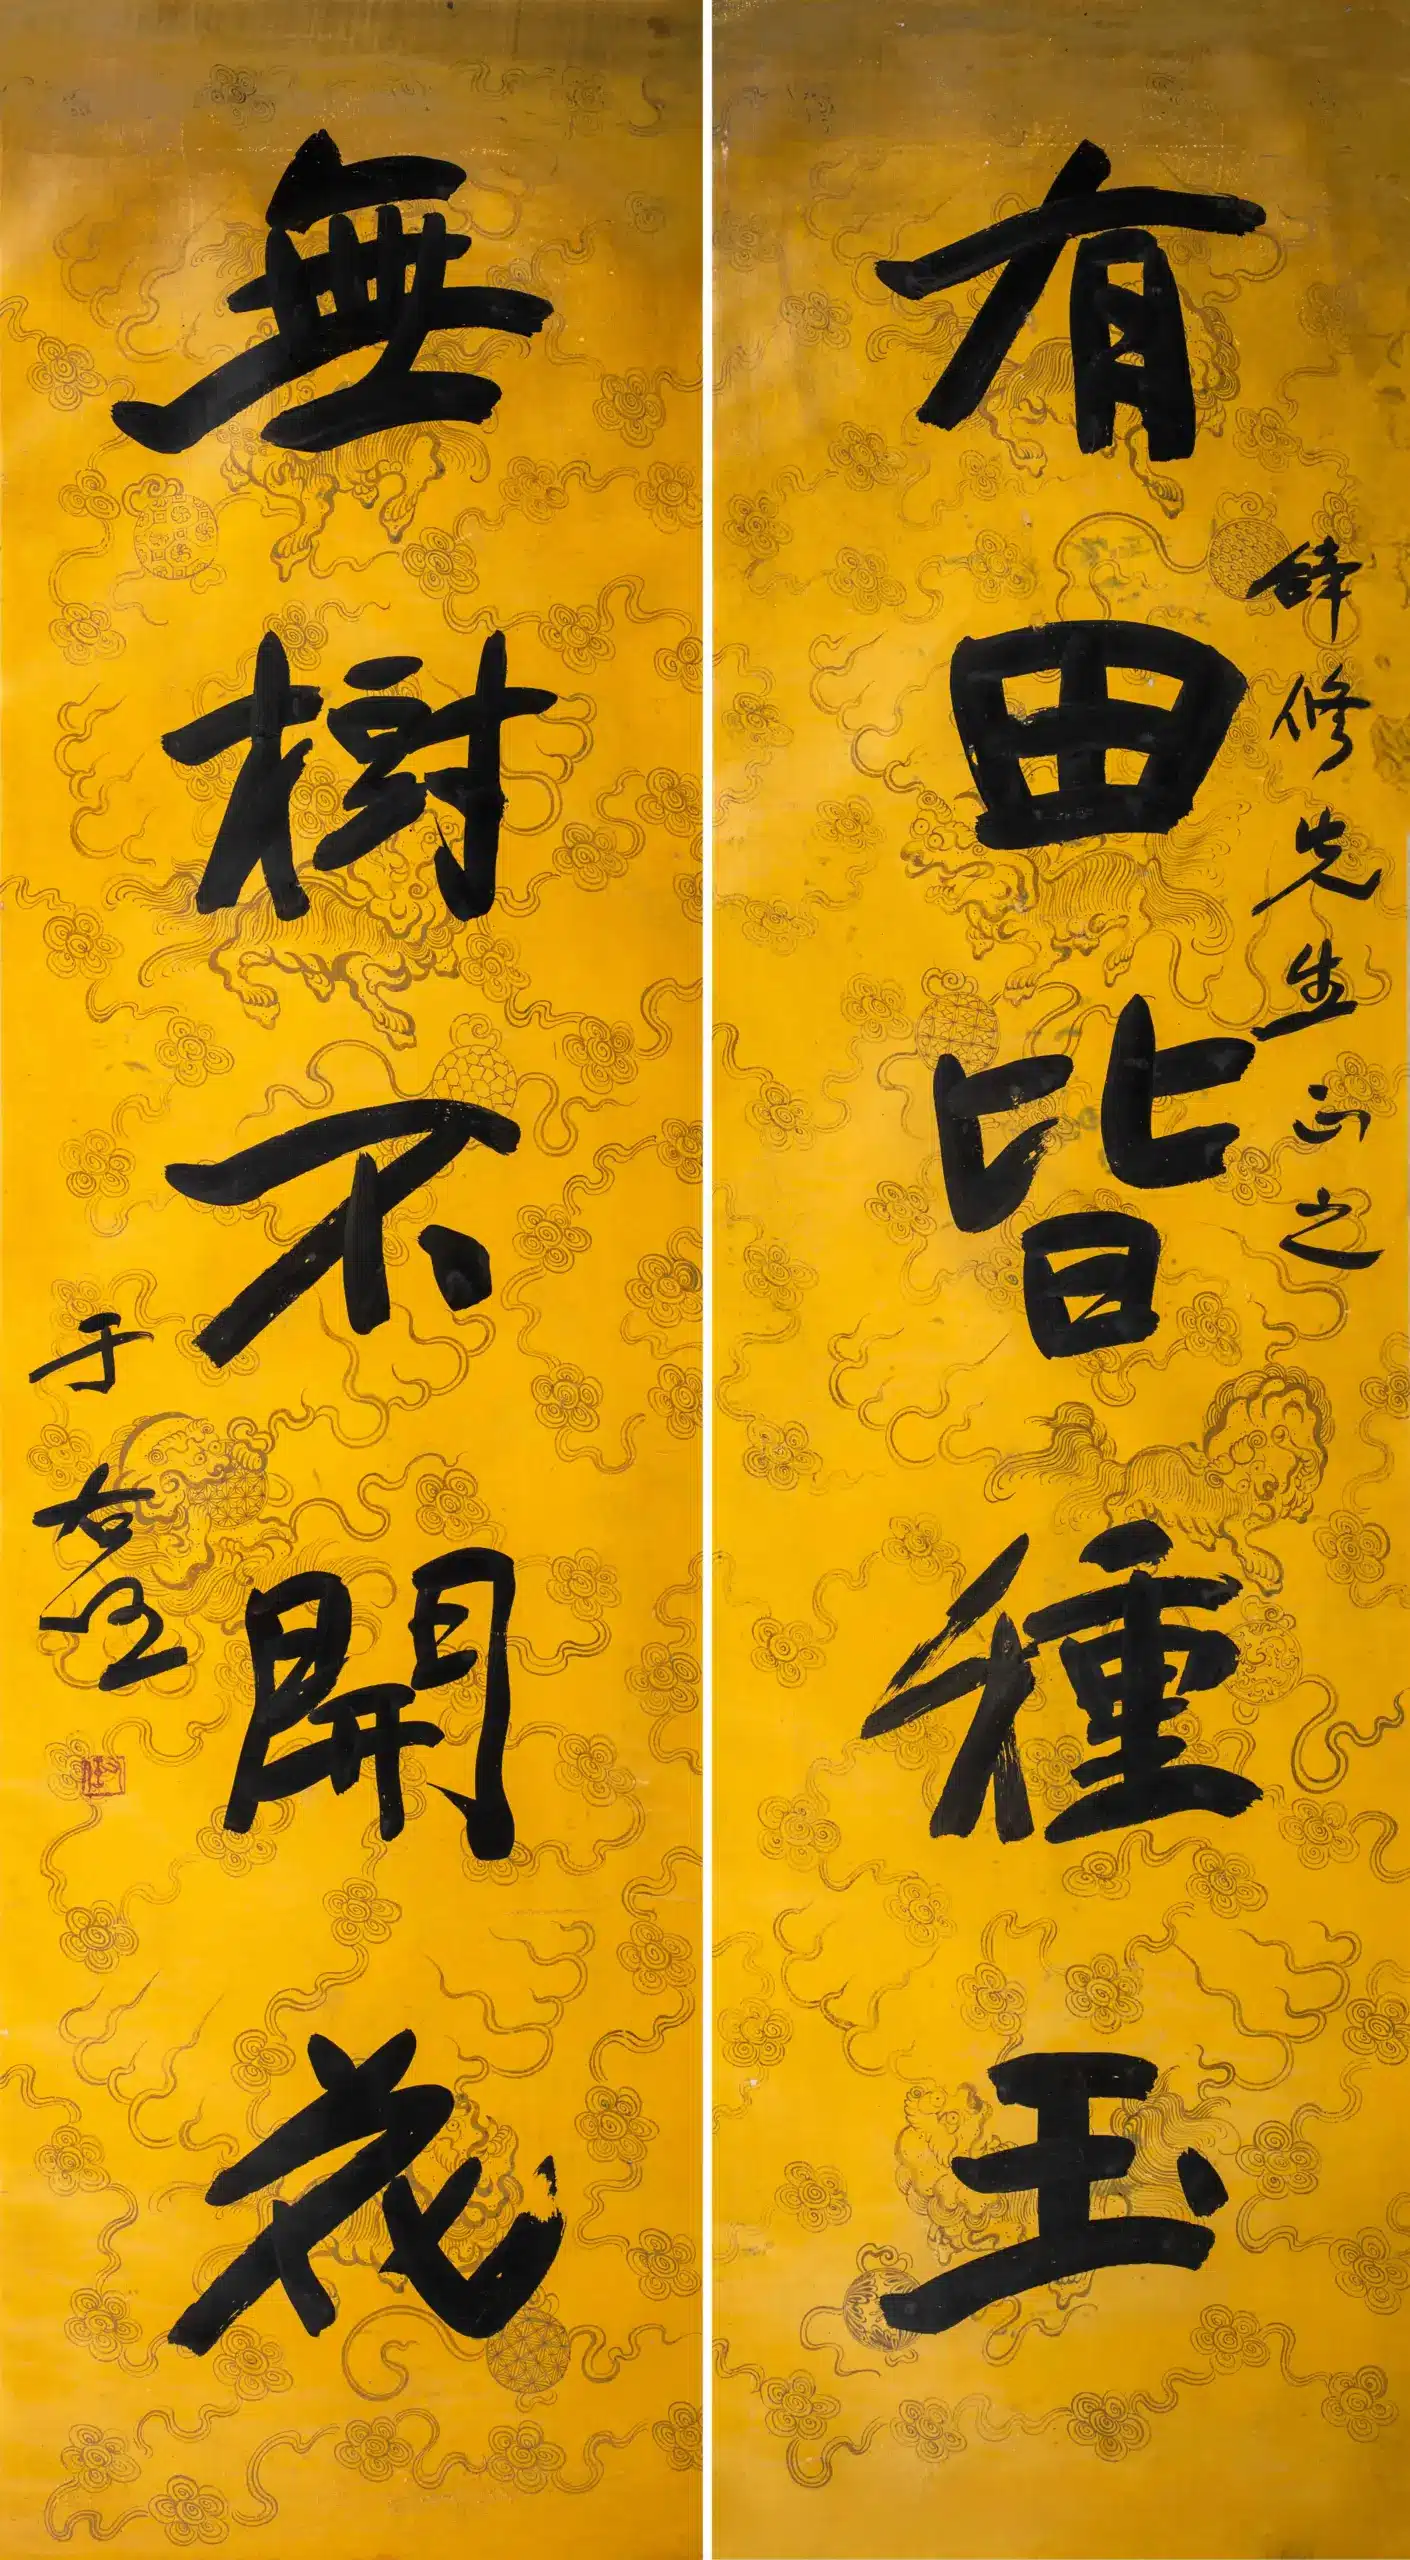 有田皆種玉
修先生正之
無樹不開花
于右任
右任